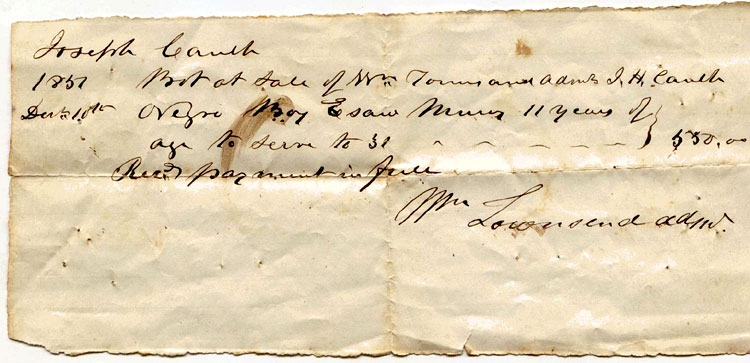 Joseph Caulk
1851 Bot at Sale of Wm Townsend admr J. H. Caulk
Decr 10th Negro Boy Esaw 11 years of
age to serve to 31 - - - - - - } 550.00
Recd payment in full
Wm Townsend admr.